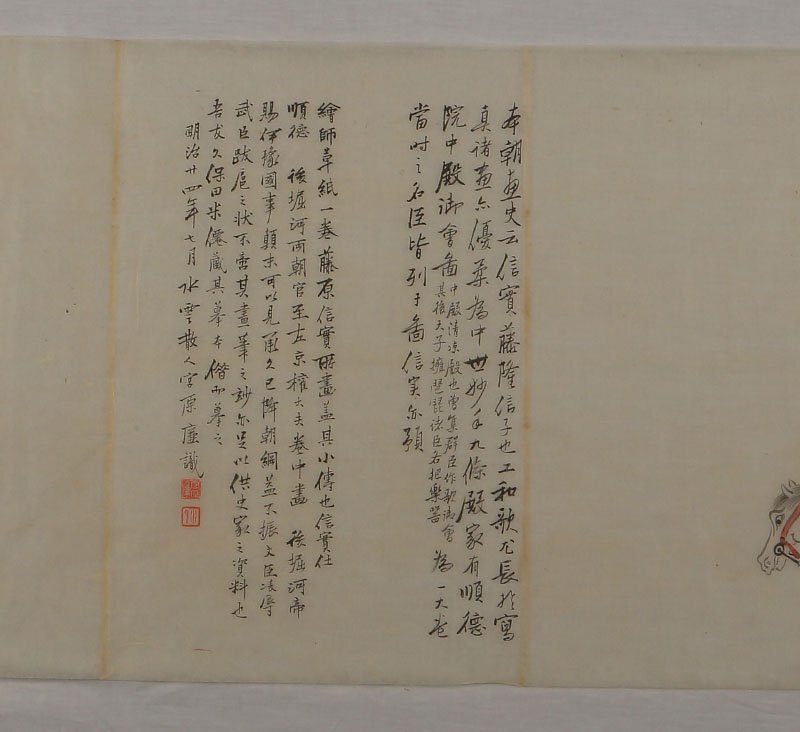 本朝畫史云信實藤隆信子也工和歌尤長於寫
真諸畫亦優柔為中世妙手九條殿家有順德
院中殿御會圖中殿清凉殿也會集群臣作歌御會
其從天子擁琵琶諸臣各把樂器為一大卷
當时之名臣皆列于圖信実亦預
繪師草紙一卷藤原信實所畫蓋其小傳也信實仕
順德 後堀河兩朝官至左京權大夫卷中畫 後堀河帝
賜伊豫國事顛末可以見承久已降朝綱益不振文臣凌辱
武臣跋扈之狀不啻其畫筆之妙亦足以供史家之資料也
吾友久保田米僊藏其摹本借而摹之
明治廿四年七月 水雲散人宮原廬識